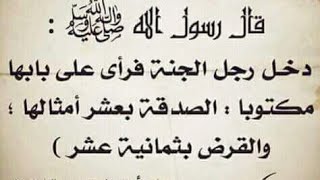 قال رسول الله ﷺ :
دخل رجل الجنة فرأى على بابها
مكتوبا : الصدقة بعشر أمثالها ؛
والقرض بثمانية عشر )